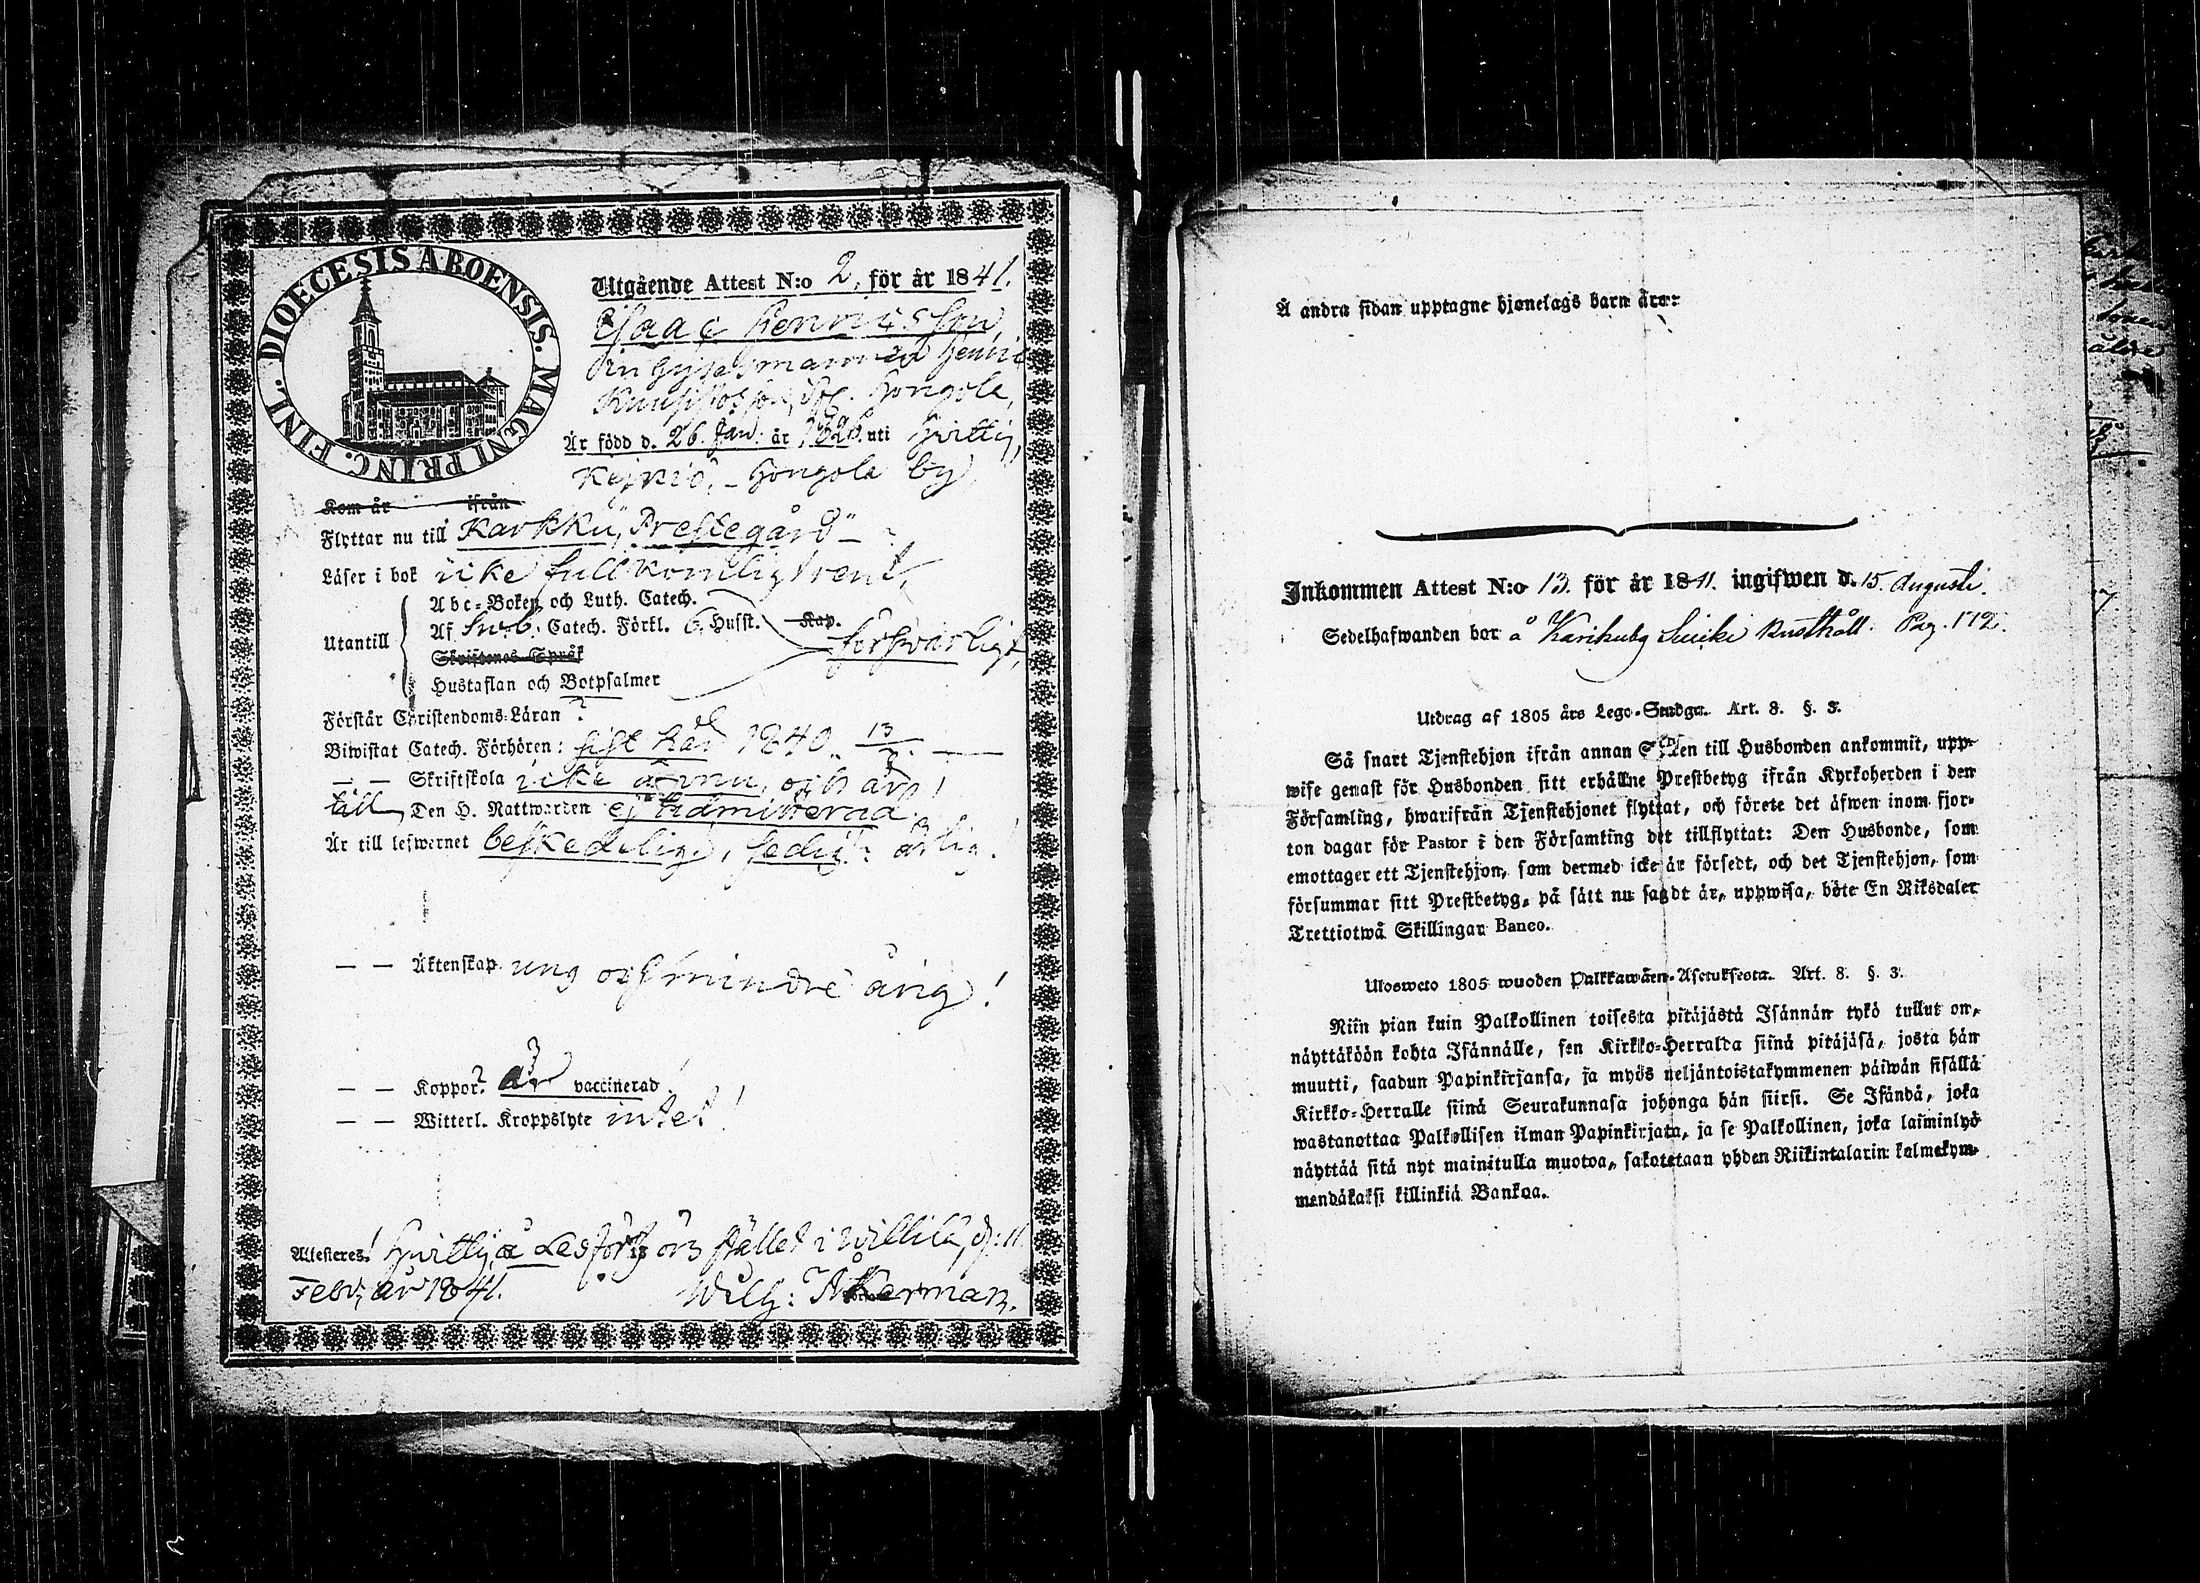 DIOECESIS ABOENSIS. MAGNI PRINC. FINL.
Utgående Attest N:o 2, för år 1841.
Isaac Henricsson,
Henric
Hongola,
Är född d. 26. Jan: år 1826. uti Hvittis,
Kejkiö, - Hongola by,
Kom år ifrån
Flyttar nu till Karkku, "Prestegård"
Läser i bok icke fullkomligt rent,
Utantill
Abc-Boken och Luth. Catech.
Af Sweb. Catech. Förkl. 6, Husst. Kap.
Skriftenes Språk
försvarligt,
Hustaflan och Botpsalmer
Förstår Christendoms-Läran?
Biwistat Catech. Förhören: sist här 1840
— — Skriftskola icke ännu, och är
till Den H. Nattwarden ej admitterad
Är till lefwernet beskedelig, sedig ärlig!
— — Äktenskap ung och mindre årig!
— — Koppor? är vaccinerad!
— — Witterl. Kroppslyte intet!
Attesteres! Hvittis, å Läsförhörs stället i Villilä, d: 11
Febr, år 1841. Wilh: Åkerman.
Å andra sidan upptagne hjonelags barn äro:
Inkommen Attest N:o 13. för år 1841. ingifwen d. 15. Augusti.
Sedelhafwanden bor å Karikuby Rusthåll. Pag. 172.
Utdrag af 1805 års Lego-Stadga. Art. 8. §. 3.
Så snart Tjenstehjon ifrån annan Socken till Husbonden ankommit, upp-
wise genast för Husbonden sitt erhållne Prestbetyg ifrån Kyrkoherden i den
Församling, hwarifrån Tjenstehjonet flyttat, och förete det äfwen inom fjor-
ton dagar för Pastor i den Församling det tillflyttat: Den Husbonde, som
emottager ett Tjenstehjon, som dermed icke är försedt, och det Tjenstehjon, som
försummar sitt Prestbetyg, på sätt nu sagdt är, uppwisa, böte En Riksdaler
Trettiotwå Skillingar Banco.
Ulosweto 1805 wuoden Palkkawäen-Asetuksesta. Art. 8. §. 3.
Niin pian kuin Palkollinen toisesta pitäjästä Isännän tykö tullut on,
näyttäköön kohta Isännälle, sen Kirkko-Herralta siinä pitäjäsä, josta hän
muutti, saadun Papinkirjansa, ja myös neljäntoistakymmenen päiwän sisällä
Kirkko-Herralle siinä Seurakunnasa johonga hän siirsi. Se Isändä, joka
wastanottaa Palkollisen ilman Papinkirjata, ja se Palkollinen, joka laiminlyö
näyttää sitä nyt mainitulla muotoa, sakotetaan yhden Riikintalarin kolmekym-
mendäkaksi killinkiä Bankoa.